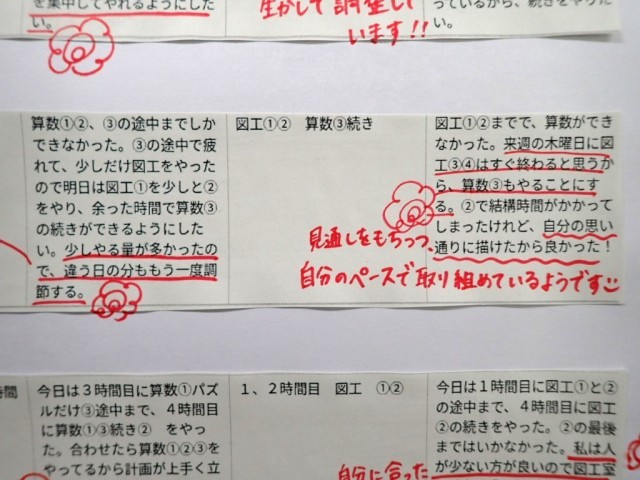 を集中してやれるようにした
い。
生かして調整して
います!!
っているから、続きをやりた
い。
算数①②、③の途中までしか
できなかった。③の途中で疲
れて、少しだけ図工をやった
ので明日は図工①を少しと②
をやり、余った時間で算数③
の続きができるようにした
い。少しやる量が多かったの
で、違う日の分ももう一度調
節する。
図工①② 算数③続き
図工①②までで、算数ができ
なかった。来週の木曜日に図
工③④はすぐ終わると思うか
ら、算数③もやることにす
る。②で結構時間がかかって
しまったけれど、自分の思い
通りに描けたから良かった!
見通しをもちつつ、
自分のペースで取り組めているようです
時間
今日は3時間目に算数①パズ
ルだけ③途中まで、4時間目
に算数①③続き② をやっ
た。合わせたら算数①②③を
やってるから計画が上手く立
1、2時間目 図工 ①②
自分に合った
今日は1時間目に図工①と②
の途中まで、4時間目に図工
②の続きをやった。②の最後
まではいかなかった。私は人
が少ない方が良いので図工室